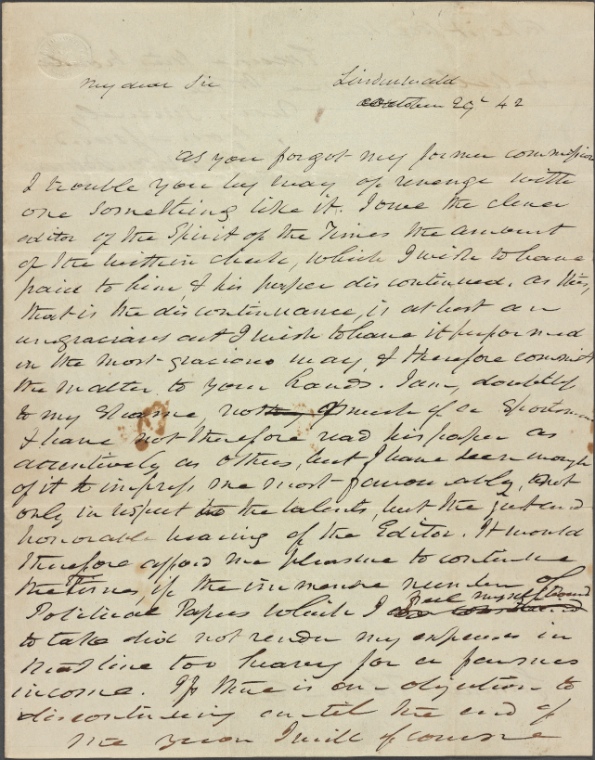 My dear Sir
Lindenwald
October 29th 42
As you forgot my former commission
I trouble you by way of revenge with
one something like it. I owe the clever
editor of the Spirit of the Times the amount
of the within check, which I wish to have
paid to him, & his paper discontinued. As this,
that is the discontinuance, is at best an
ungracious act I wish to have it performed
in the most gracious way, & therefore commit
the matter to your hands. I am, doubtless
to my shame, not much of a Sportsman
& have not therefore read his paper as
attentively as others, but I have seen enough
of it to impress me most favourably, not
only in respect to the talents, but the just and
honorable bearing of the Editor. It would
therefore afford me pleasure to continue
the Times, if the immense number of
Political Papers which I feel myself bound
to take did not render my expenses in
that line too heavy for a farmers
income. If there is an objection to
discontinuing until the end of
the year I will of course